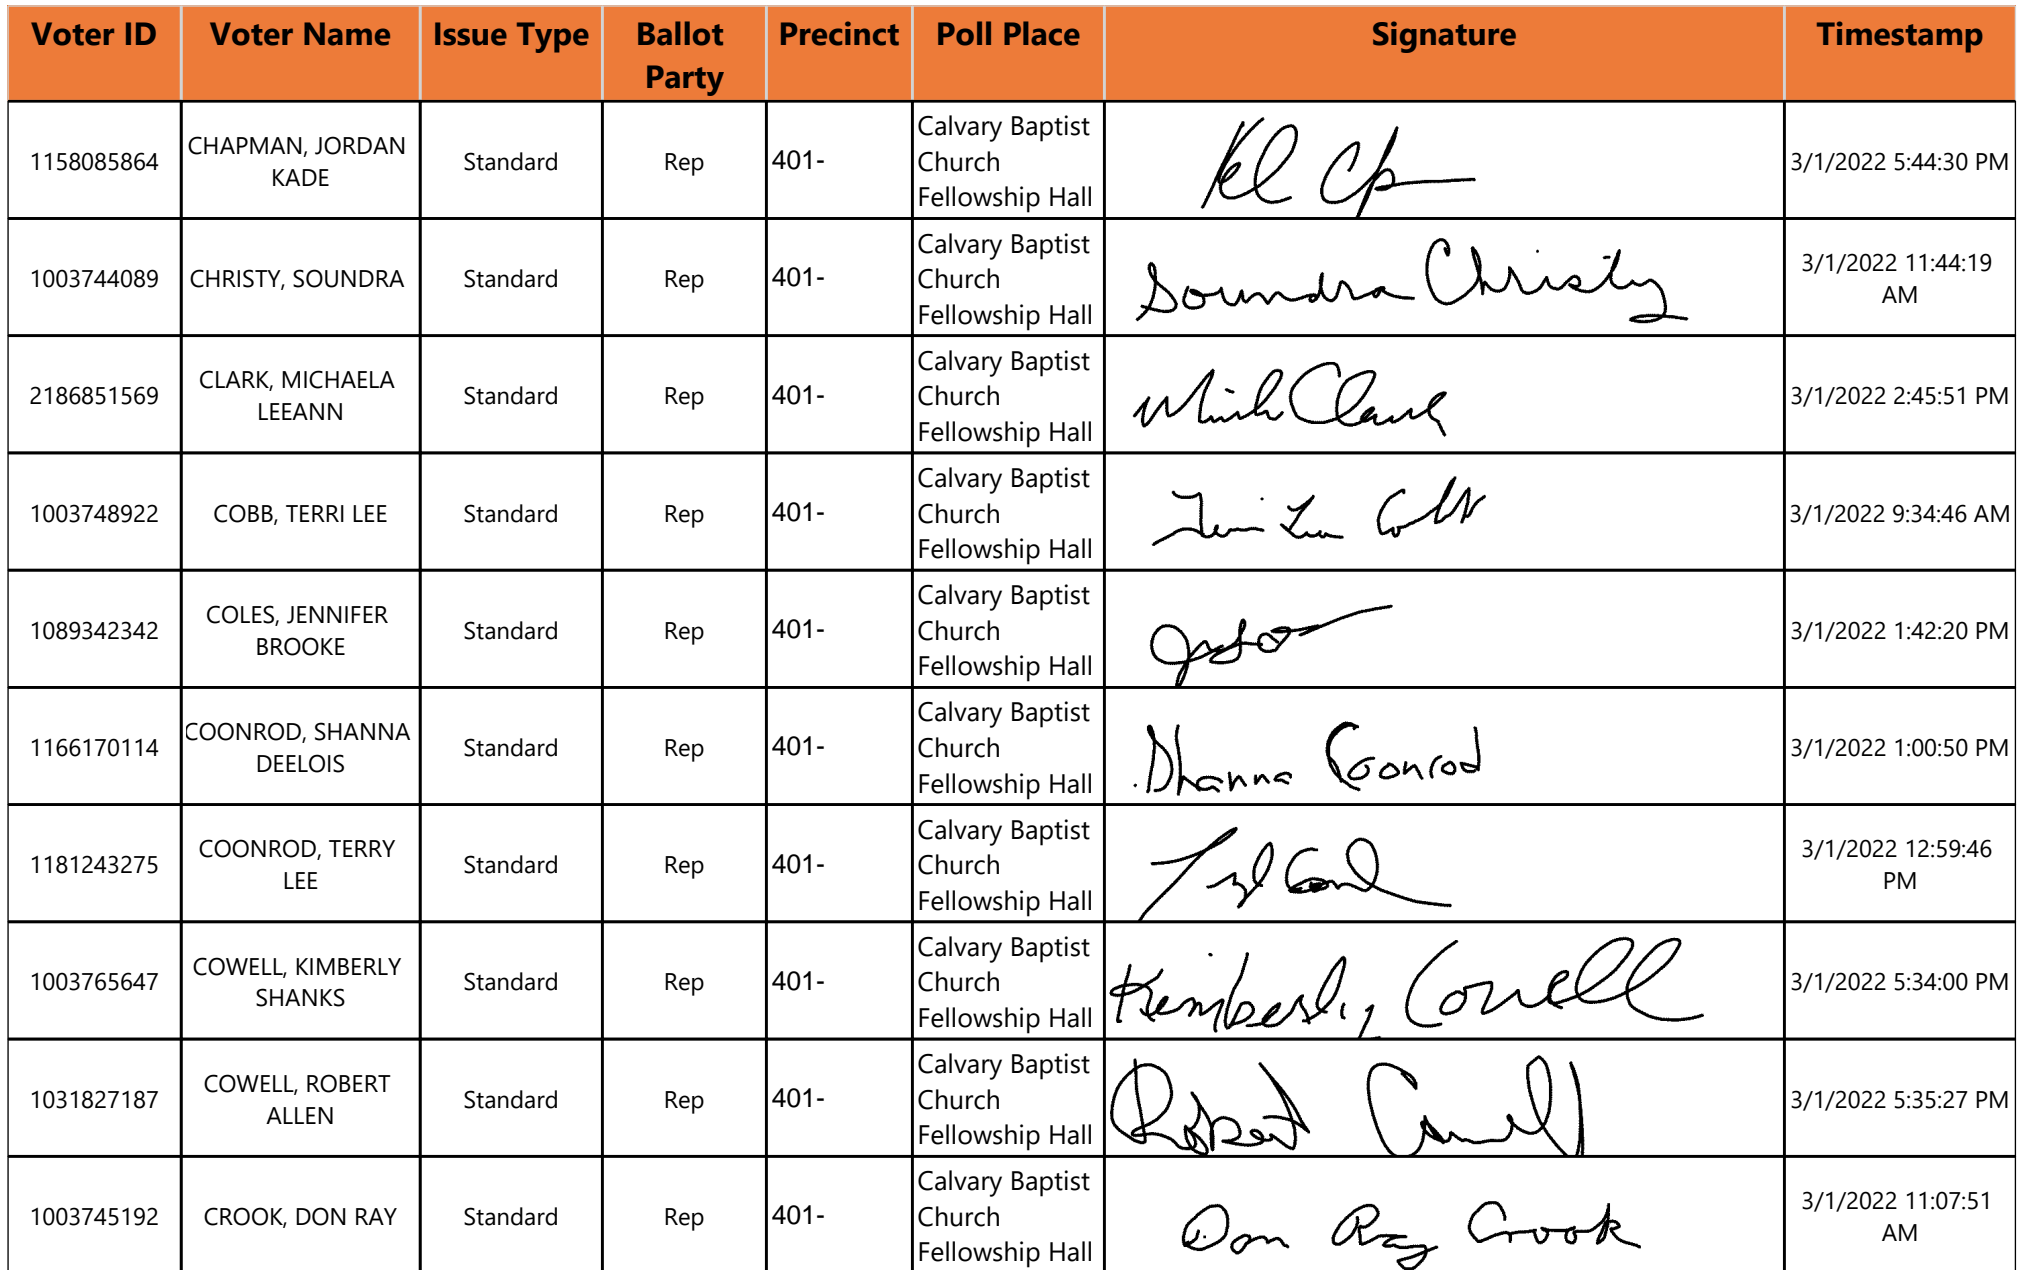 Voter ID Voter Name Issue Type Ballot Party Precinct Poll Place Signature Timestamp
1158085864 CHAPMAN, JORDAN KADE Standard Rep 401- Calvary Baptist Church Fellowship Hall 3/1/2022 5:44:30 PM
1003744089 CHRISTY, SOUNDRA Standard Rep 401- Calvary Baptist Church Fellowship Hall Soundra Christy 3/1/2022 11:44:19 AM
2186851569 CLARK, MICHAELA LEEANN Standard Rep 401- Calvary Baptist Church Fellowship Hall Clark 3/1/2022 2:45:51 PM
1003748922 COBB, TERRI LEE Standard Rep 401- Calvary Baptist Church Fellowship Hall Terri Lee Cobb 3/1/2022 9:34:46 AM
1089342342 COLES, JENNIFER BROOKE Standard Rep 401- Calvary Baptist Church Fellowship Hall 3/1/2022 1:42:20 PM
1166170114 COONROD, SHANNA DEELOIS Standard Rep 401- Calvary Baptist Church Fellowship Hall Shanna Coonrod 3/1/2022 1:00:50 PM
1181243275 COONROD, TERRY LEE Standard Rep 401- Calvary Baptist Church Fellowship Hall 3/1/2022 12:59:46 PM
1003765647 COWELL, KIMBERLY SHANKS Standard Rep 401- Calvary Baptist Church Fellowship Hall Kimberly Cowell 3/1/2022 5:34:00 PM
1031827187 COWELL, ROBERT ALLEN Standard Rep 401- Calvary Baptist Church Fellowship Hall Robert Cowell 3/1/2022 5:35:27 PM
1003745192 CROOK, DON RAY Standard Rep 401- Calvary Baptist Church Fellowship Hall Don Ray Crook 3/1/2022 11:07:51 AM